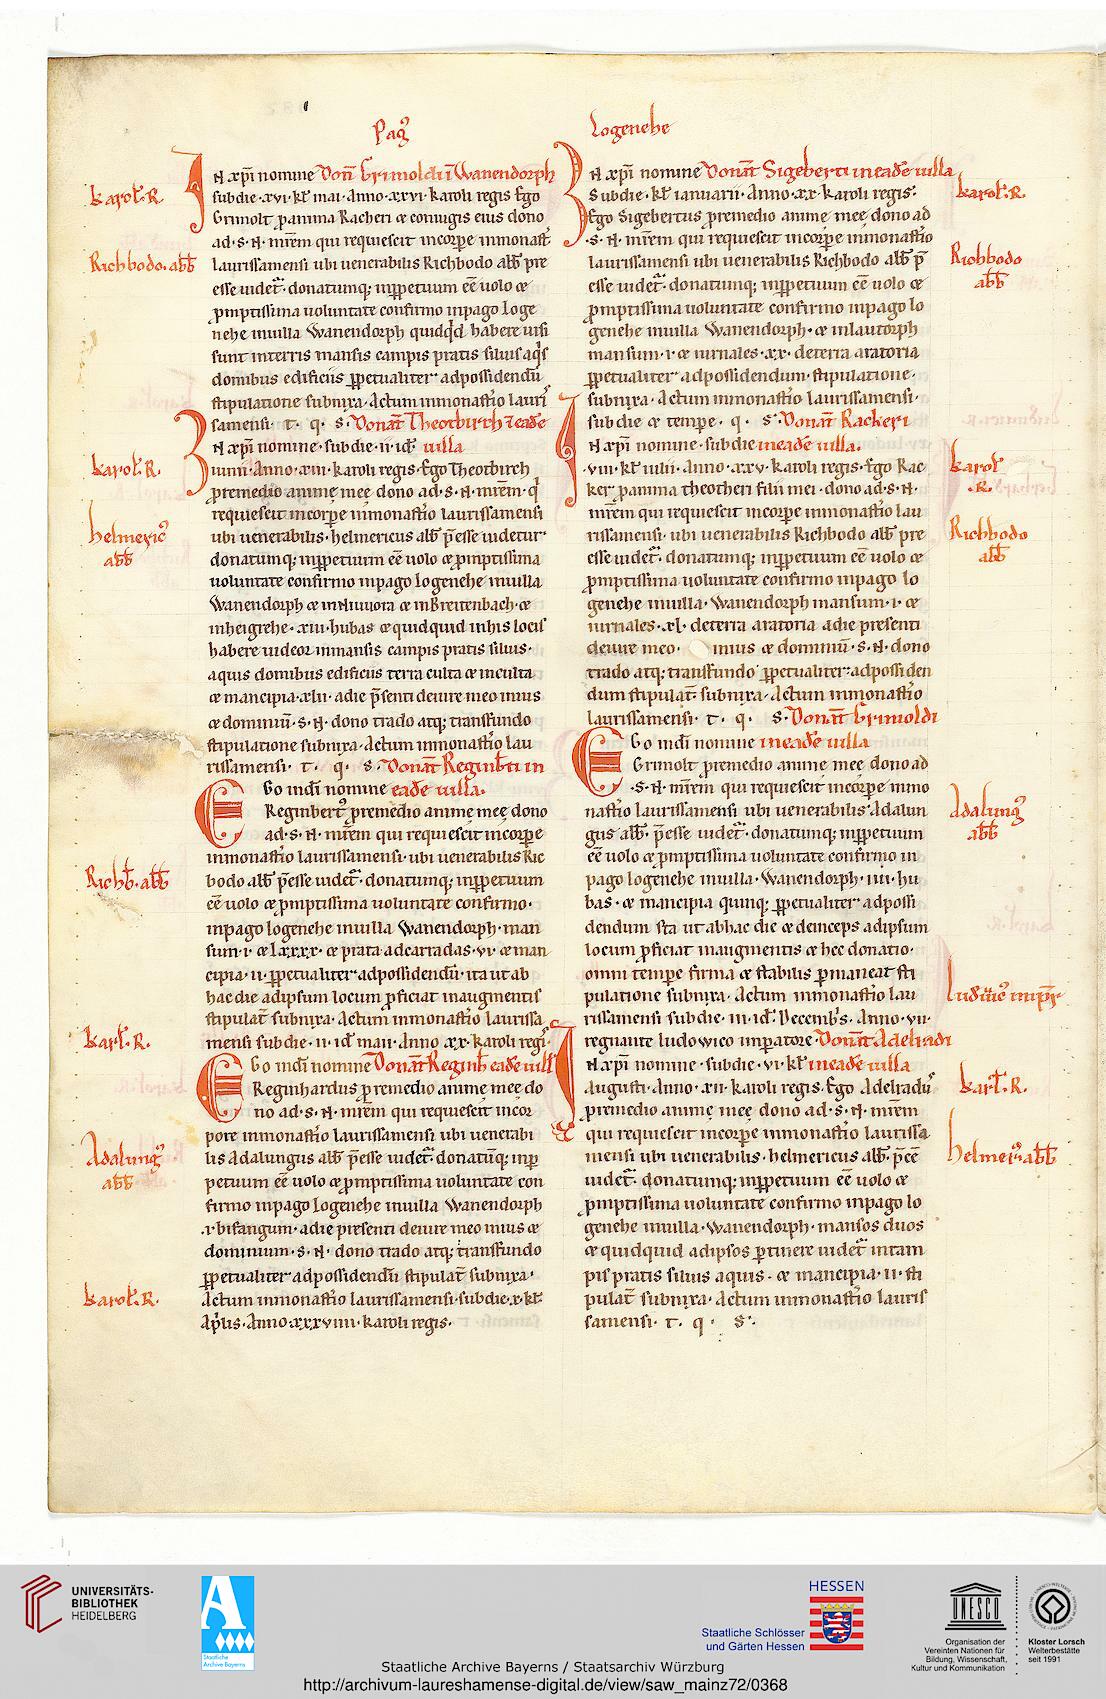 Pag᷒ Logenehe
IN χp̄i nomine Donat̄ Grimoldi ī Wanendorph
karol̄. R.
subdie·xvi·kl̄ mai·Anno·xxvi·karoli regis Ego
Grimolt p anima Racheri & coniugis eius dono
ad·S·N·mr̄em qui requiescit incorpe inmonast̄
Richbodo·abb̄
laurissamensi ubi uenerabilis Richbodo abb̄ pre
esse uidet᷑·donatumq; inppetuum eē uolo &
pmptissima uoluntate confirmo inpago loge
nehe inuilla Wanendorph quidq̇d habere uisi
sunt interris mansis campis pratis siluis aq̇s
domibus edificiis ppetualiter adpossidendū
stipulatione subnixa·Actum inmonast̄io lauri
samensi·t·q·S·Donat̄ Theotburch ī eadē
uilla
IN χp̄i nomine·subdie·ii·id᷒
karol̄. R.
iunii·Anno·xiii·karoli regis·Ego Theotburch
premedio anime mee dono ad·S·N·mr̄em·q̇
requiescit incorpe inmonast̄io laurissamensi
helmeric᷒
abb̄
ubi uenerabilis·helmericus abb̄ pēsse uidetur·
donatumq; inppetuum eē uolo & pmptissima
uoluntate confirmo inpago logenehe inuilla
Wanendorph & in Niuuora & inBreitenbach·&
inheigrehe·xiii·hubas & quidquid inhis locis
habere uideor inmansis campis pratis siluis·
aquis domibus edificiis terra culta & inculta
& mancipia·xlii·adie p̄senti deiure meo inius
& dominiū·S·N·dono trado atq; transfundo
stipulatione subnixa·Actum inmonast̄io lau
rissamensi·t·q·S·Donat̄ Reginb̄ti in
eadē uilla.
EGo indi nomine
Reginbert᷒ premedio anime mee dono
ad·S·N·mr̄em qui requiescit incorpe
inmonast̄io laurissamensi·ubi uenerabilis Ric
Richb̄·abb̄
bodo abb̄ pēsse uidet᷑·donatumq; inppetuum
eē uolo & pmptissima uoluntate confirmo·
inpago logenehe inuilla Wanendorph·man
sum·i·& lxxxx·& prata adcarradas·vi·& man
cipia·ii·ppetualiter adpossidendū·ita ut ab
hac die adipsum locum pficiat inaugmentis
stipulat̄ subnixa·Actum inmonast̄io laurissa
karl̄. R.
mensi subdie·ii·id᷒ maii·Anno·xx·karoli regi᷒
EGo indi nomine Donat̄ Reginh̄ eadē uill̄
Reginhardus premedio anime mee do
no ad·S·N·mr̄em qui requiescit incor
pore inmonast̄io laurissamensi ubi uenerabi
Adalung᷒
abb̄
lis Adalungus abb̄ pēsse uidet᷑·donatūq; inp
petuum eē uolo & pmptissima uoluntate con
firmo inpago Logenehe inuilla Wanendorph
·i·bifangum·adie presenti deiure meo inius &
dominium·S·N·dono trado atq; transfundo
ppetualiter adpossidendū stipulat̄ subnixa·
karol̄. R.
Actum inmonast̄io laurissamensi·subdie·x·kl̄
Ap̄lis·Anno·xxxviiii·karoli regis.
IN χp̄i nomine Donat̄ Sigeberti in eadē uilla
karol̄. R.
Subdie·kl̄ ianuarii·Anno·xx·karoli regis·
Ego Sigebertus premedio anime mee dono ad
·S·N·mr̄em qui requiescit incorpe inmonast̄io
Richbodo
abb̄
laurissamensi ubi uenerabilis Richbodo abb̄ p̄
esse uidet᷑·donatumq; inppetuum eē uolo &
pmptissima uoluntate confirmo inpago lo
genehe inuilla Wanendorph·& inlautorph
mansum·i·& iurnales·xx·deterra aratoria
ppetualiter adpossidendum·stipulatione·
subnixa·Actum inmonast̄io laurissamensi·
subdie & tempe·t·q·S·Donat̄ Rackeri
IN χp̄i nomine·subdie in eadē uilla.
karol̄
.R.
viii·kl̄ iulii·Anno·xxv·karoli regis·Ego Rac
ker panima theotheri filii mei·dono ad·S·N·
mr̄em qui requiescit incorpe inmonast̄io lau
Richbodo
abb̄
rissamensi·ubi uenerabilis Richbodo abb̄ pre
esse uidet᷑·donatumq; inppetuum eē uolo &
pmptissima uoluntate confirmo inpago lo
genehe inuilla·Wanendorph mansum·i·&
iurnales·xl·deterra aratoria adie presenti
deiure meo· inius & dominiū·S·N·dono
trado atq; transfundo ppetualiter adpossiden
dum stipulat̄ subnixa·Actum inmonast̄io
laurissamensi·t·q·S·Donat̄ Grimoldi
EGo indi nomine in eadē uilla
Grimolt premedio anime mee dono ad
·S·N·mr̄em qui requiescit incorpe inmo
Adalung᷒
abb̄
nast̄io laurissamensi ubi uenerabilis Adalun
gus abb̄·pēsse uidet᷑·donatumq; inppetuum
eē uolo & pmptissima uoluntate confirmo in
pago logenehe inuilla·Wanendorph·iii·hu
bas·& mancipia quinq; ppetualiter adpossi
dendum sta ut abhac die & deinceps adipsum
locum pficiat inaugmentis & hec donatio·
omni tempe firma & stabilis pmaneat sti
luduic᷒ imp̄r
pulatione subnixa·Actum inmonast̄io lau
rissamensi subdie·iii·id᷒ Decemb̄s·Anno·vii·
regnante ludowico inperatore·Donat̄ Adelradi
IN χp̄i nomine·subdie·vi·kl̄ in eadē uilla
karl̄. R.
Augusti·Anno·xii·karoli regis·Ego Adelradus
premedio anime mee dono ad·S·N·mr̄em
qui requiescit incorpe inmonast̄io laurissa
helmer᷒·abb̄
mensi ubi uenerabilis·helmericus abb̄·pēē
uidet᷑·donatumq; inppetuum eē uolo &
pmptissima uoluntate confirmo inpago lo
genehe inuilla·Wanendorph·mansos duos
& quidquid adipsos ptinere uidet᷑ incam
pis pratis siluis aquis·& mancipia·ii·sti
pulat̄ subnixa·Actum inmonast̄io lauris
samensi·t·q·S·
UNIVERSITÄTS-
BIBLIOTHEK
HEIDELBERG
Staatliche
Archive Bayerns
Staatliche Archive Bayerns / Staatsarchiv Würzburg
http://archivum-laureshamense-digital.de/view/saw_mainz72/0368
HESSEN
Staatliche Schlösser
und Gärten Hessen
UNESCO
Organisation der
Vereinten Nationen für
Bildung, Wissenschaft,
Kultur und Kommunikation
Kloster Lorsch
Welterbestätte
seit 1991